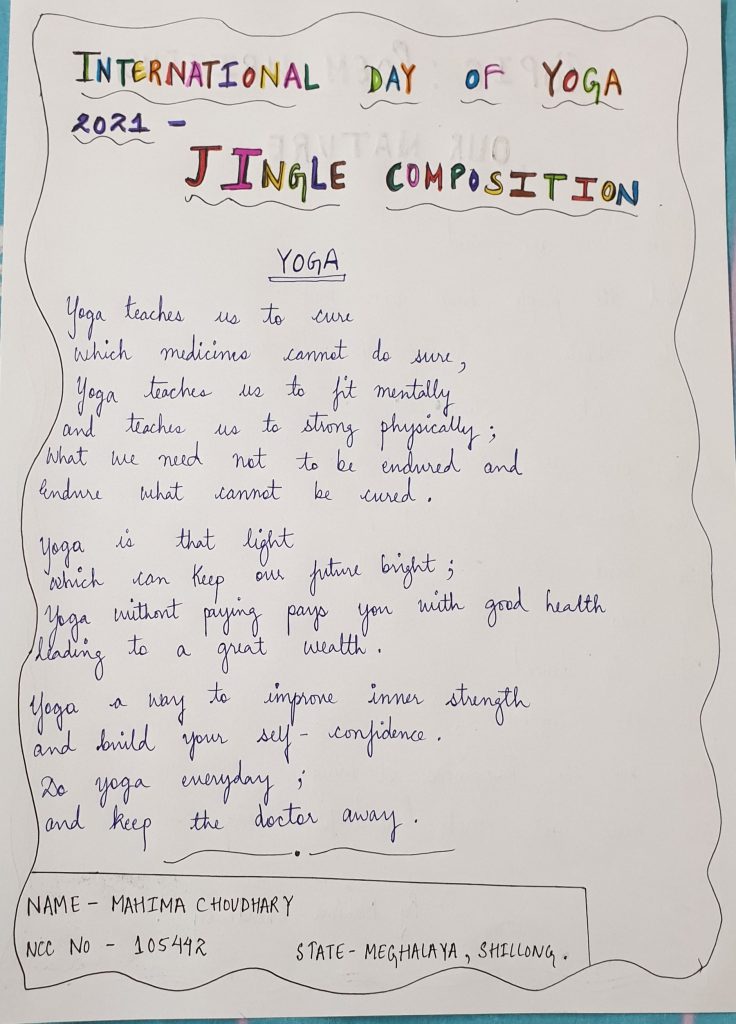 INTERNATIONAL DAY OF YOGA
2021 -
JINGLE COMPOSITION
YOGA
Yoga teaches us to cure
which medicines cannot do sure,
Yoga teaches us to fit mentally
and teaches us to strong physically;
What we need not to be endured and
Endure what cannot be cured.
Yoga is that light
which can keep our future bright;
Yoga without paying pays you with good health
leading to a great wealth.
Yoga a way to improve inner strength
and build your self-confidence.
Do yoga everyday;
and keep the doctor away.
NAME - MAHIMA CHOUDHARY
NCC NO - 105442 STATE- MEGHALAYA, SHILLONG.